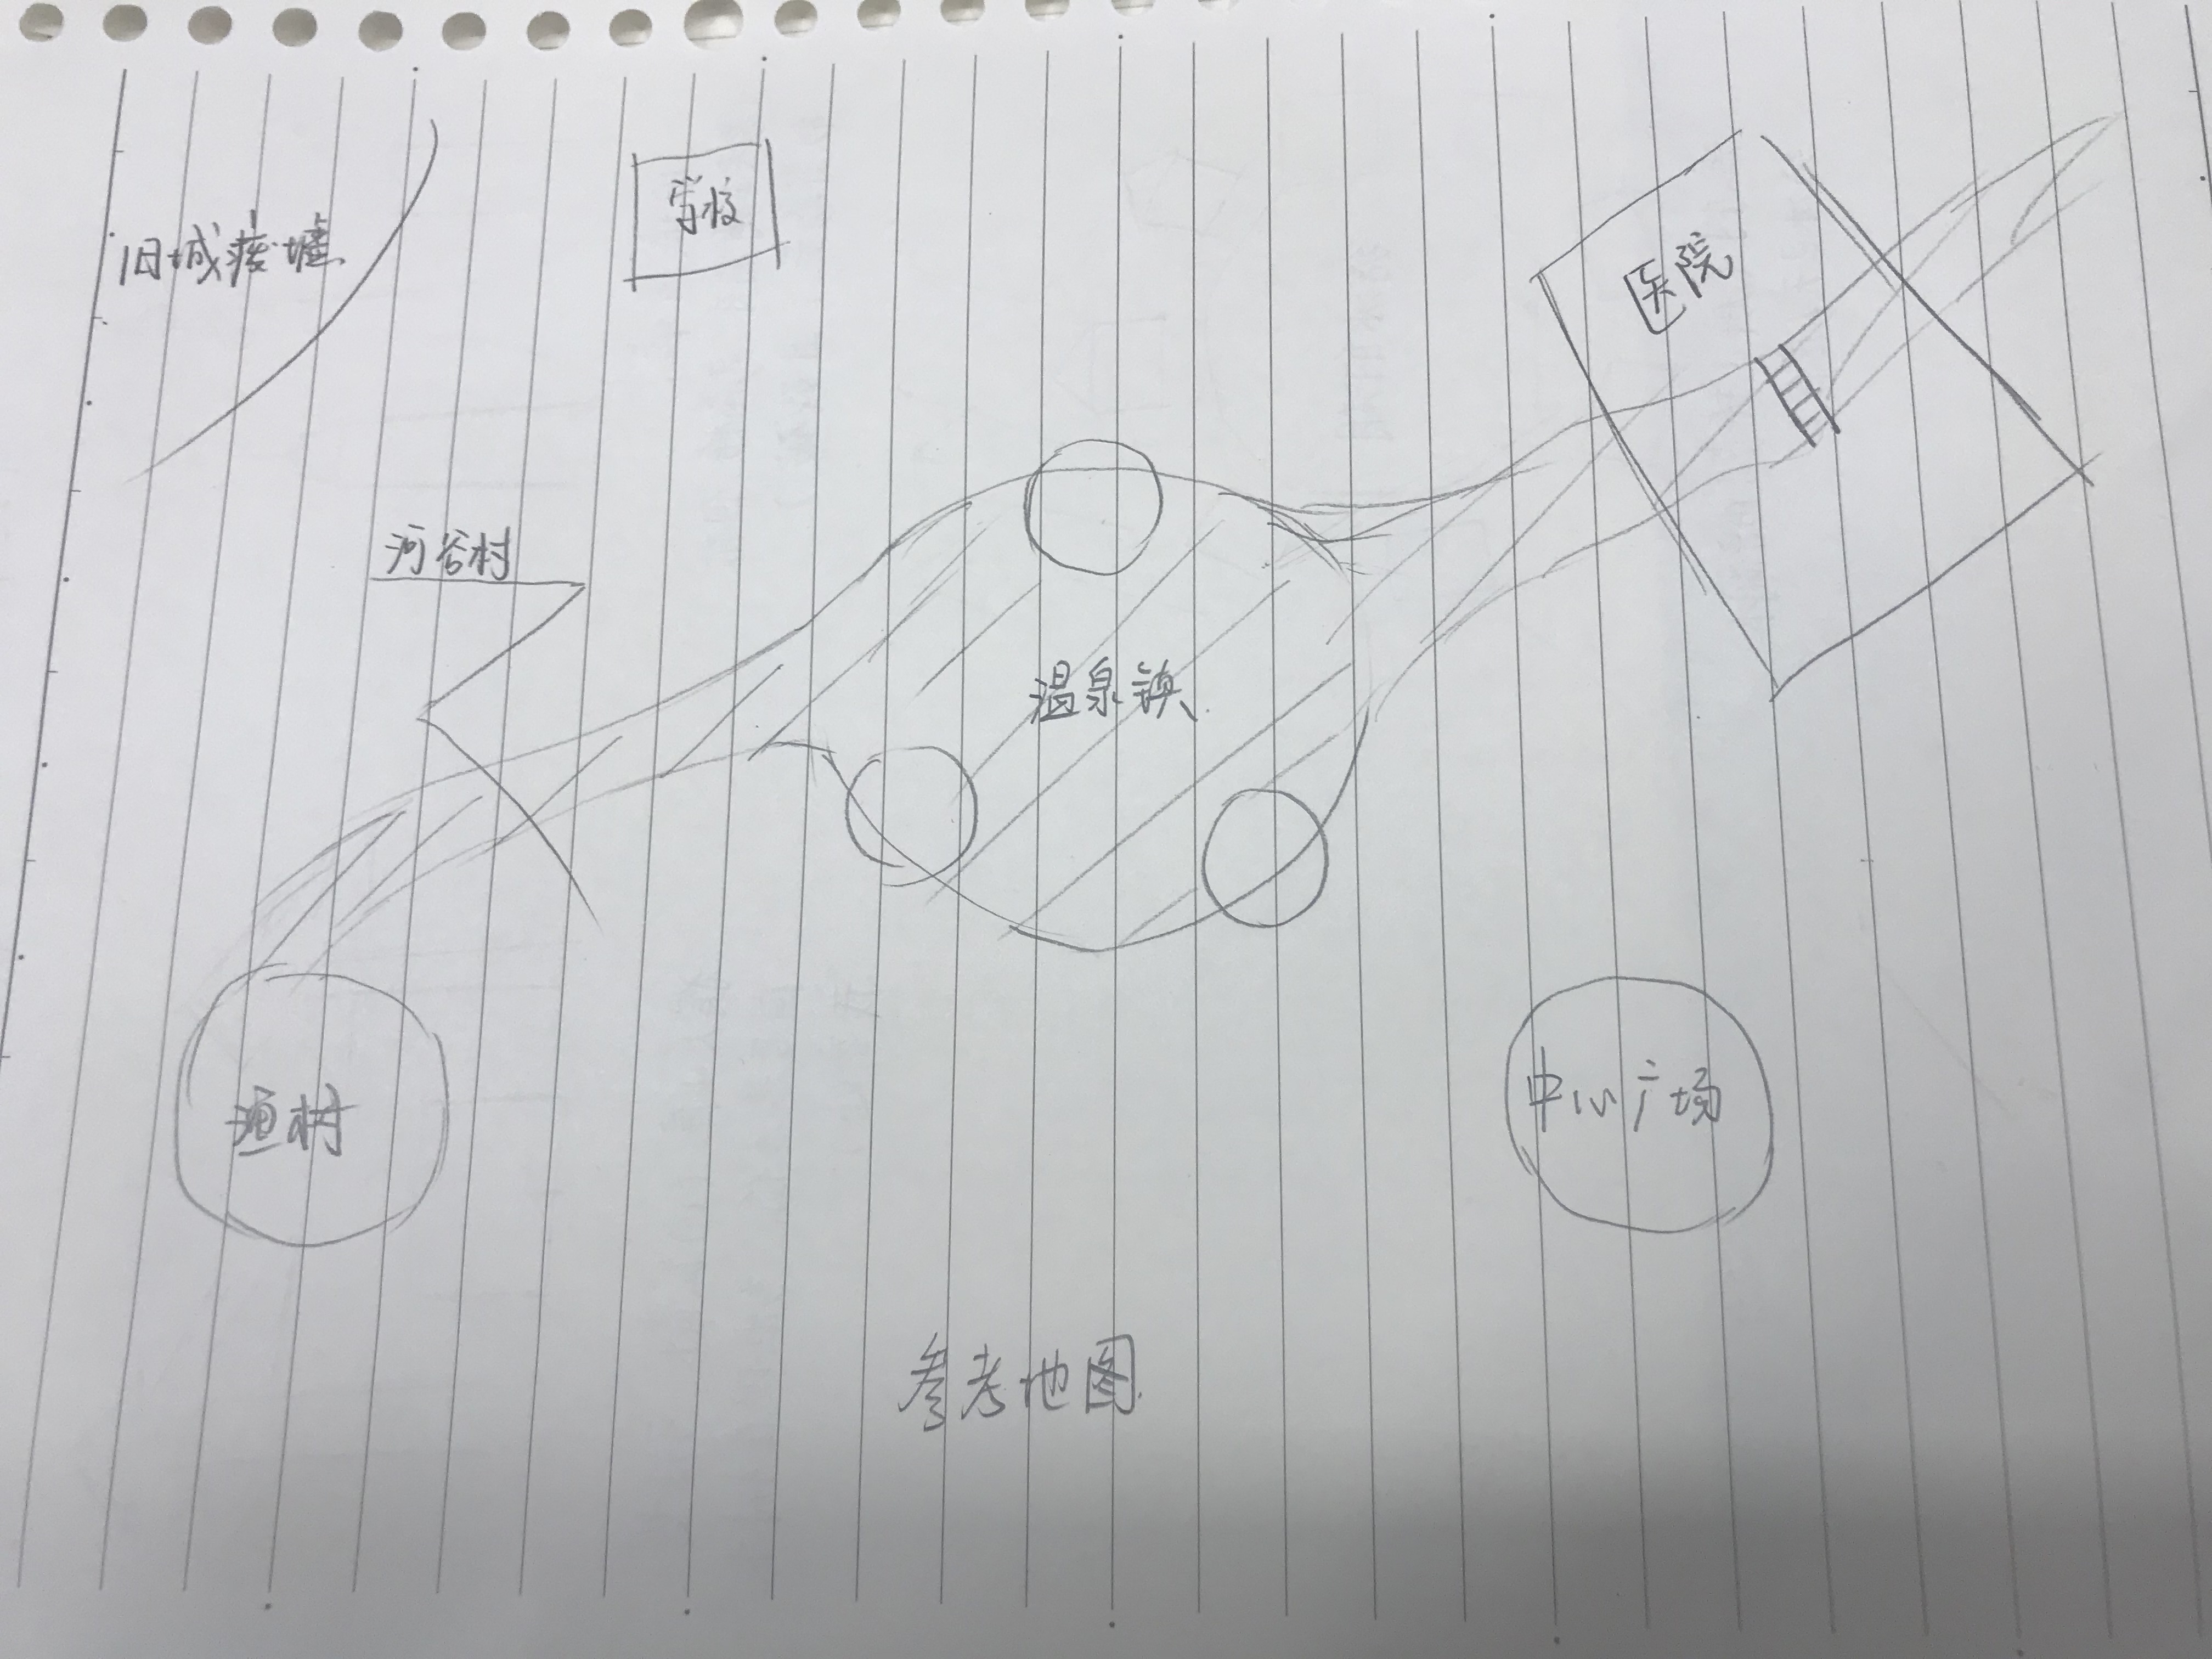 学校
旧城废墟
医院
河谷村
温泉镇
渔村
中心广场
参考地图